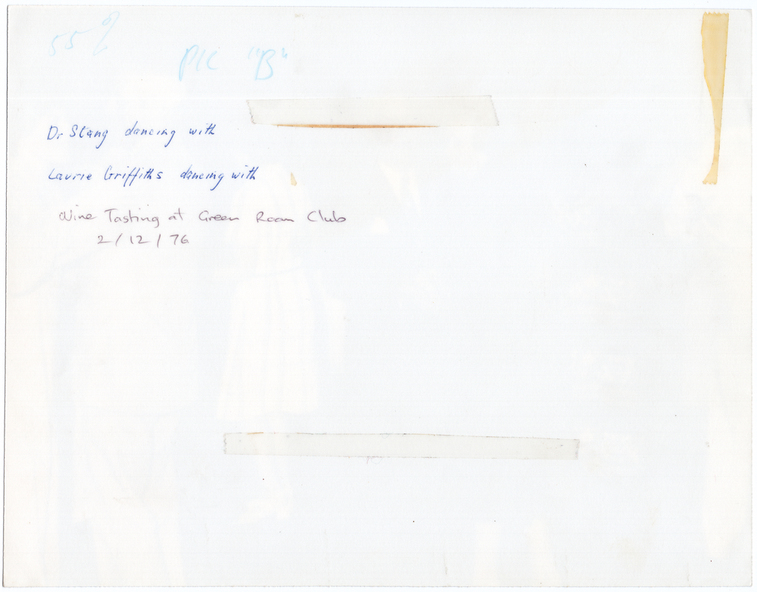 55%
PIC "B"
Dr Stang dancing with
Laurie Griffiths dancing with
Wine Tasting at Green Room Club
2/12/76